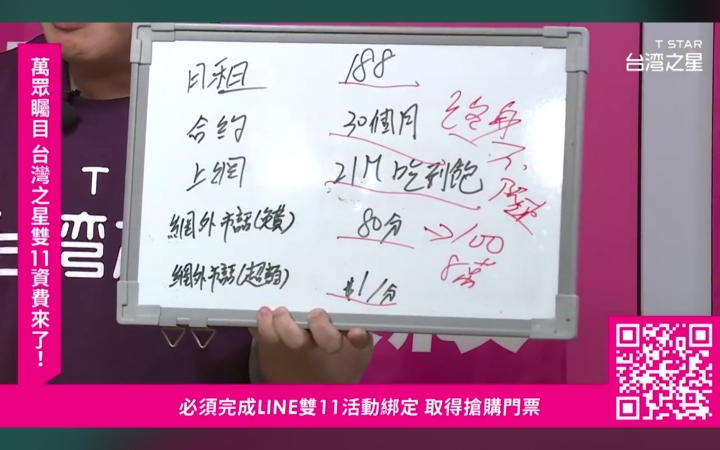 T STAR
台灣之星
萬眾矚目 台灣之星雙11資費來了!
月租 188
合約 30個月
上網 21M吃到飽
終身
不
限速
網外市話(免費) 80分 →100
網外市話(超額) $1/分
T
必須完成LINE雙11活動綁定 取得搶購門票